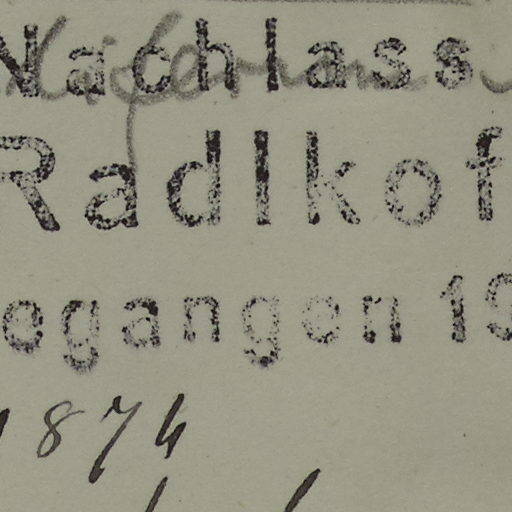 Nachlass
Radlkof
egangen 19
1874